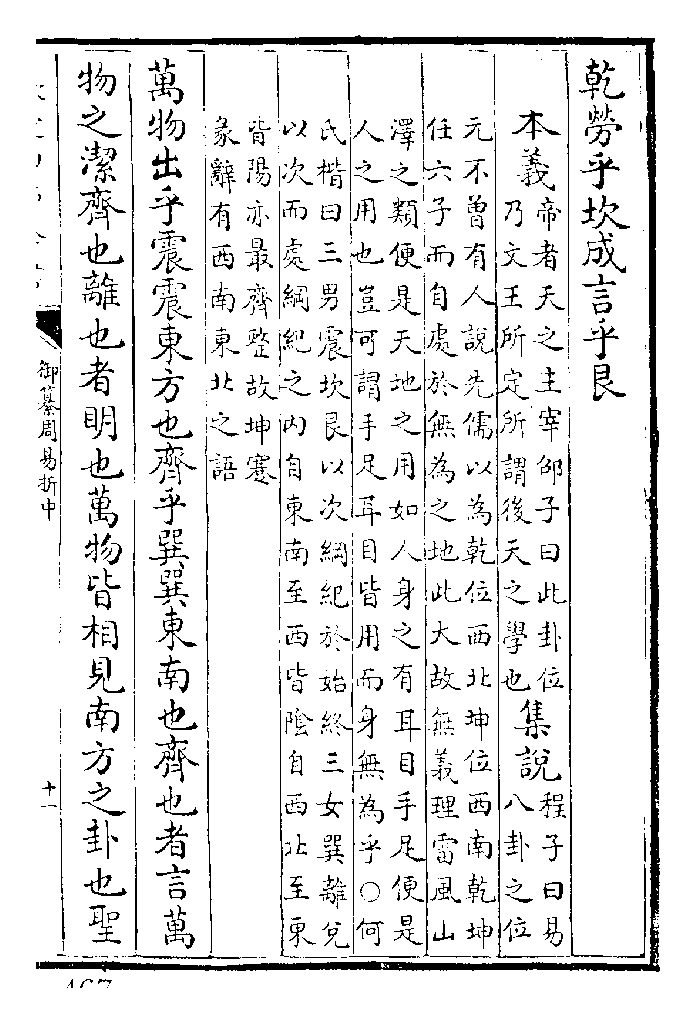 乾勞乎坎成言乎艮
本義帝者天之主宰邵子曰此卦位
乃文王所定所謂後天之學也
集說程子曰易
八卦之位
元不曾有人說先儒以為乾位西北坤位西南乾坤
任六子而自處於無為之地此大故無義理雷風山
澤之類便是天地之用如人身之有耳目手足便是
人之用也豈可謂手足耳目皆用而身無為乎○何
氏楷曰三男震坎艮以次綱紀於始終三女巽離兌
以次而處綱紀之内自東南至西皆隂自西北至東
皆陽亦最齊整故坤蹇
彖辭有西南東北之語
萬物出乎震震東方也齊乎巽巽東南也齊也者言萬
物之潔齊也離也者明也萬物皆相見南方之卦也聖
御纂周易折中
十一